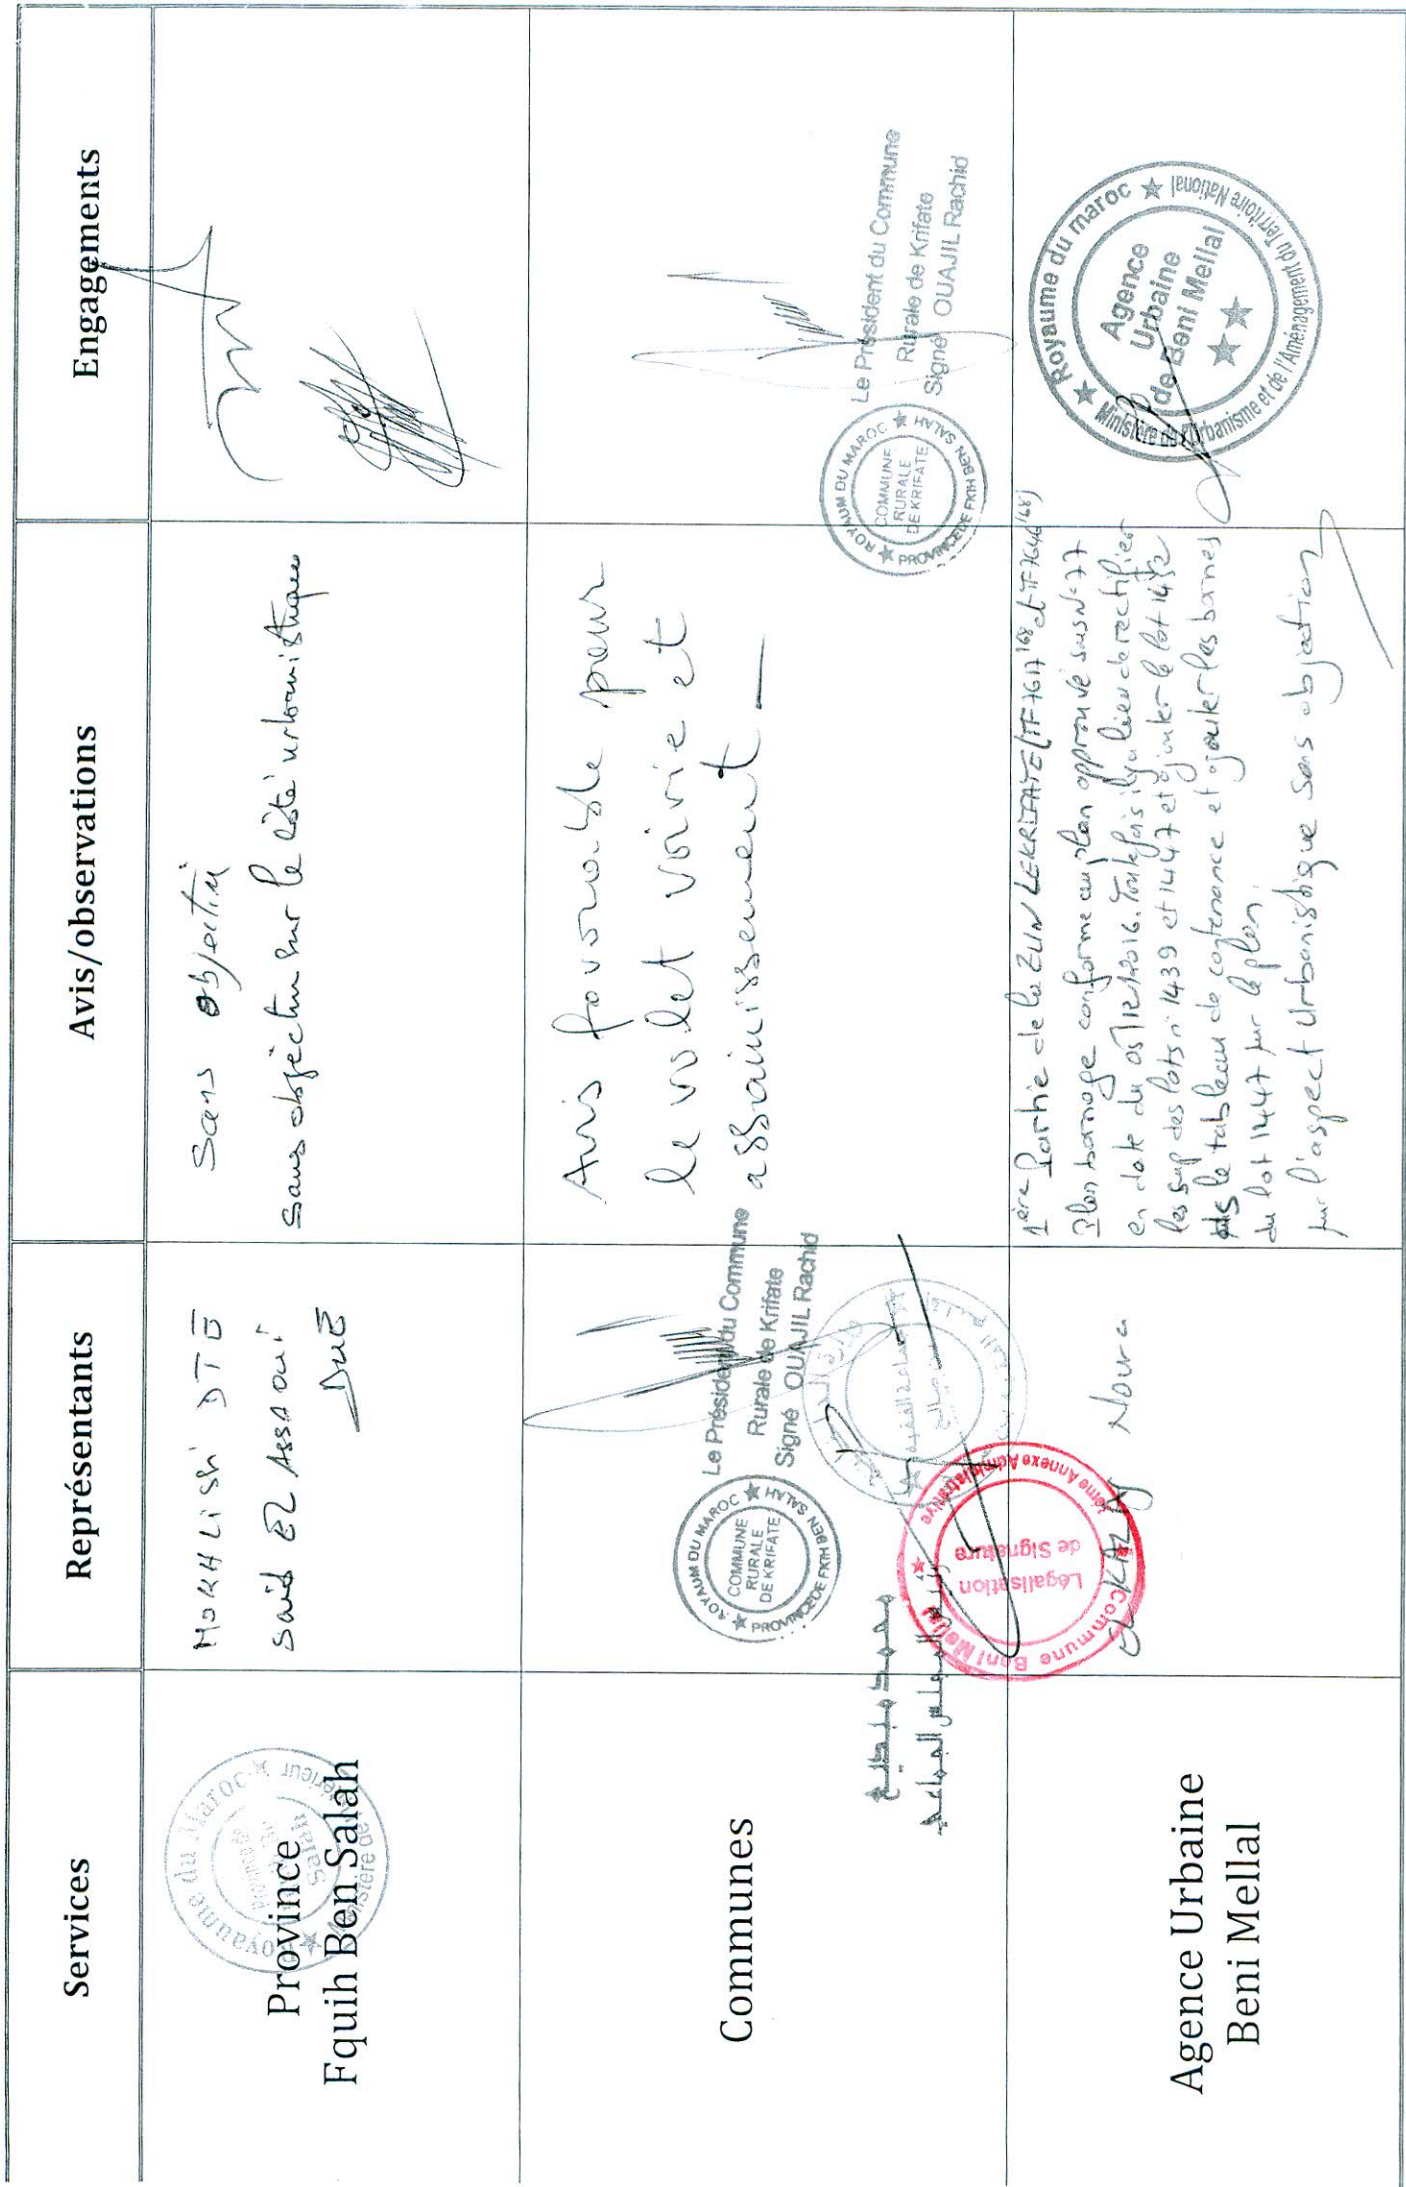 Services
Représentants
Avis/observations
Engagements
Province
Fquih Ben Salah
Royaume du Maroc
Salah
MOKHLISSI DTE
Said EL Assaoui
DUE
Sans objection
Sans objection sur le côté urbanistique
Communes
Le Président du Commune
Rurale de Krifate
Signé OUAJIL Rachid
ROYAUM DU MAROC
COMMUNE
RURALE
DE KRIFATE
PROVINCE DE FKIH BEN SALAH
Commune Beni Mellal
Légalisation
de Signature
Annexe Administrative
Avis favorable pour
le volet voirie et
assainissement
Le Président du Commune
Rurale de Krifate
Signé OUAJIL Rachid
ROYAUM DU MAROC
COMMUNE
RURALE
DE KRIFATE
PROVINCE DE FKIH BEN SALAH
Agence Urbaine
Beni Mellal
Noura
1ère Partie de la ZUN LEKRIFATE
Plan bornage conforme au plan approuvé sous N° 77
en date du 05/12/2016. Toutefois il y a lieu de rectifier
les sup des lots n° 1439 et 1447 et ajouter le lot 1452
le tableau de contenance et ajouter les bornes
du lot 1447 sur le plan.
sur l'aspect urbanistique sans objection
Royaume du maroc
Agence
Urbaine
de Beni Mellal
Ministère de l'Urbanisme et de l'Aménagement du Territoire National